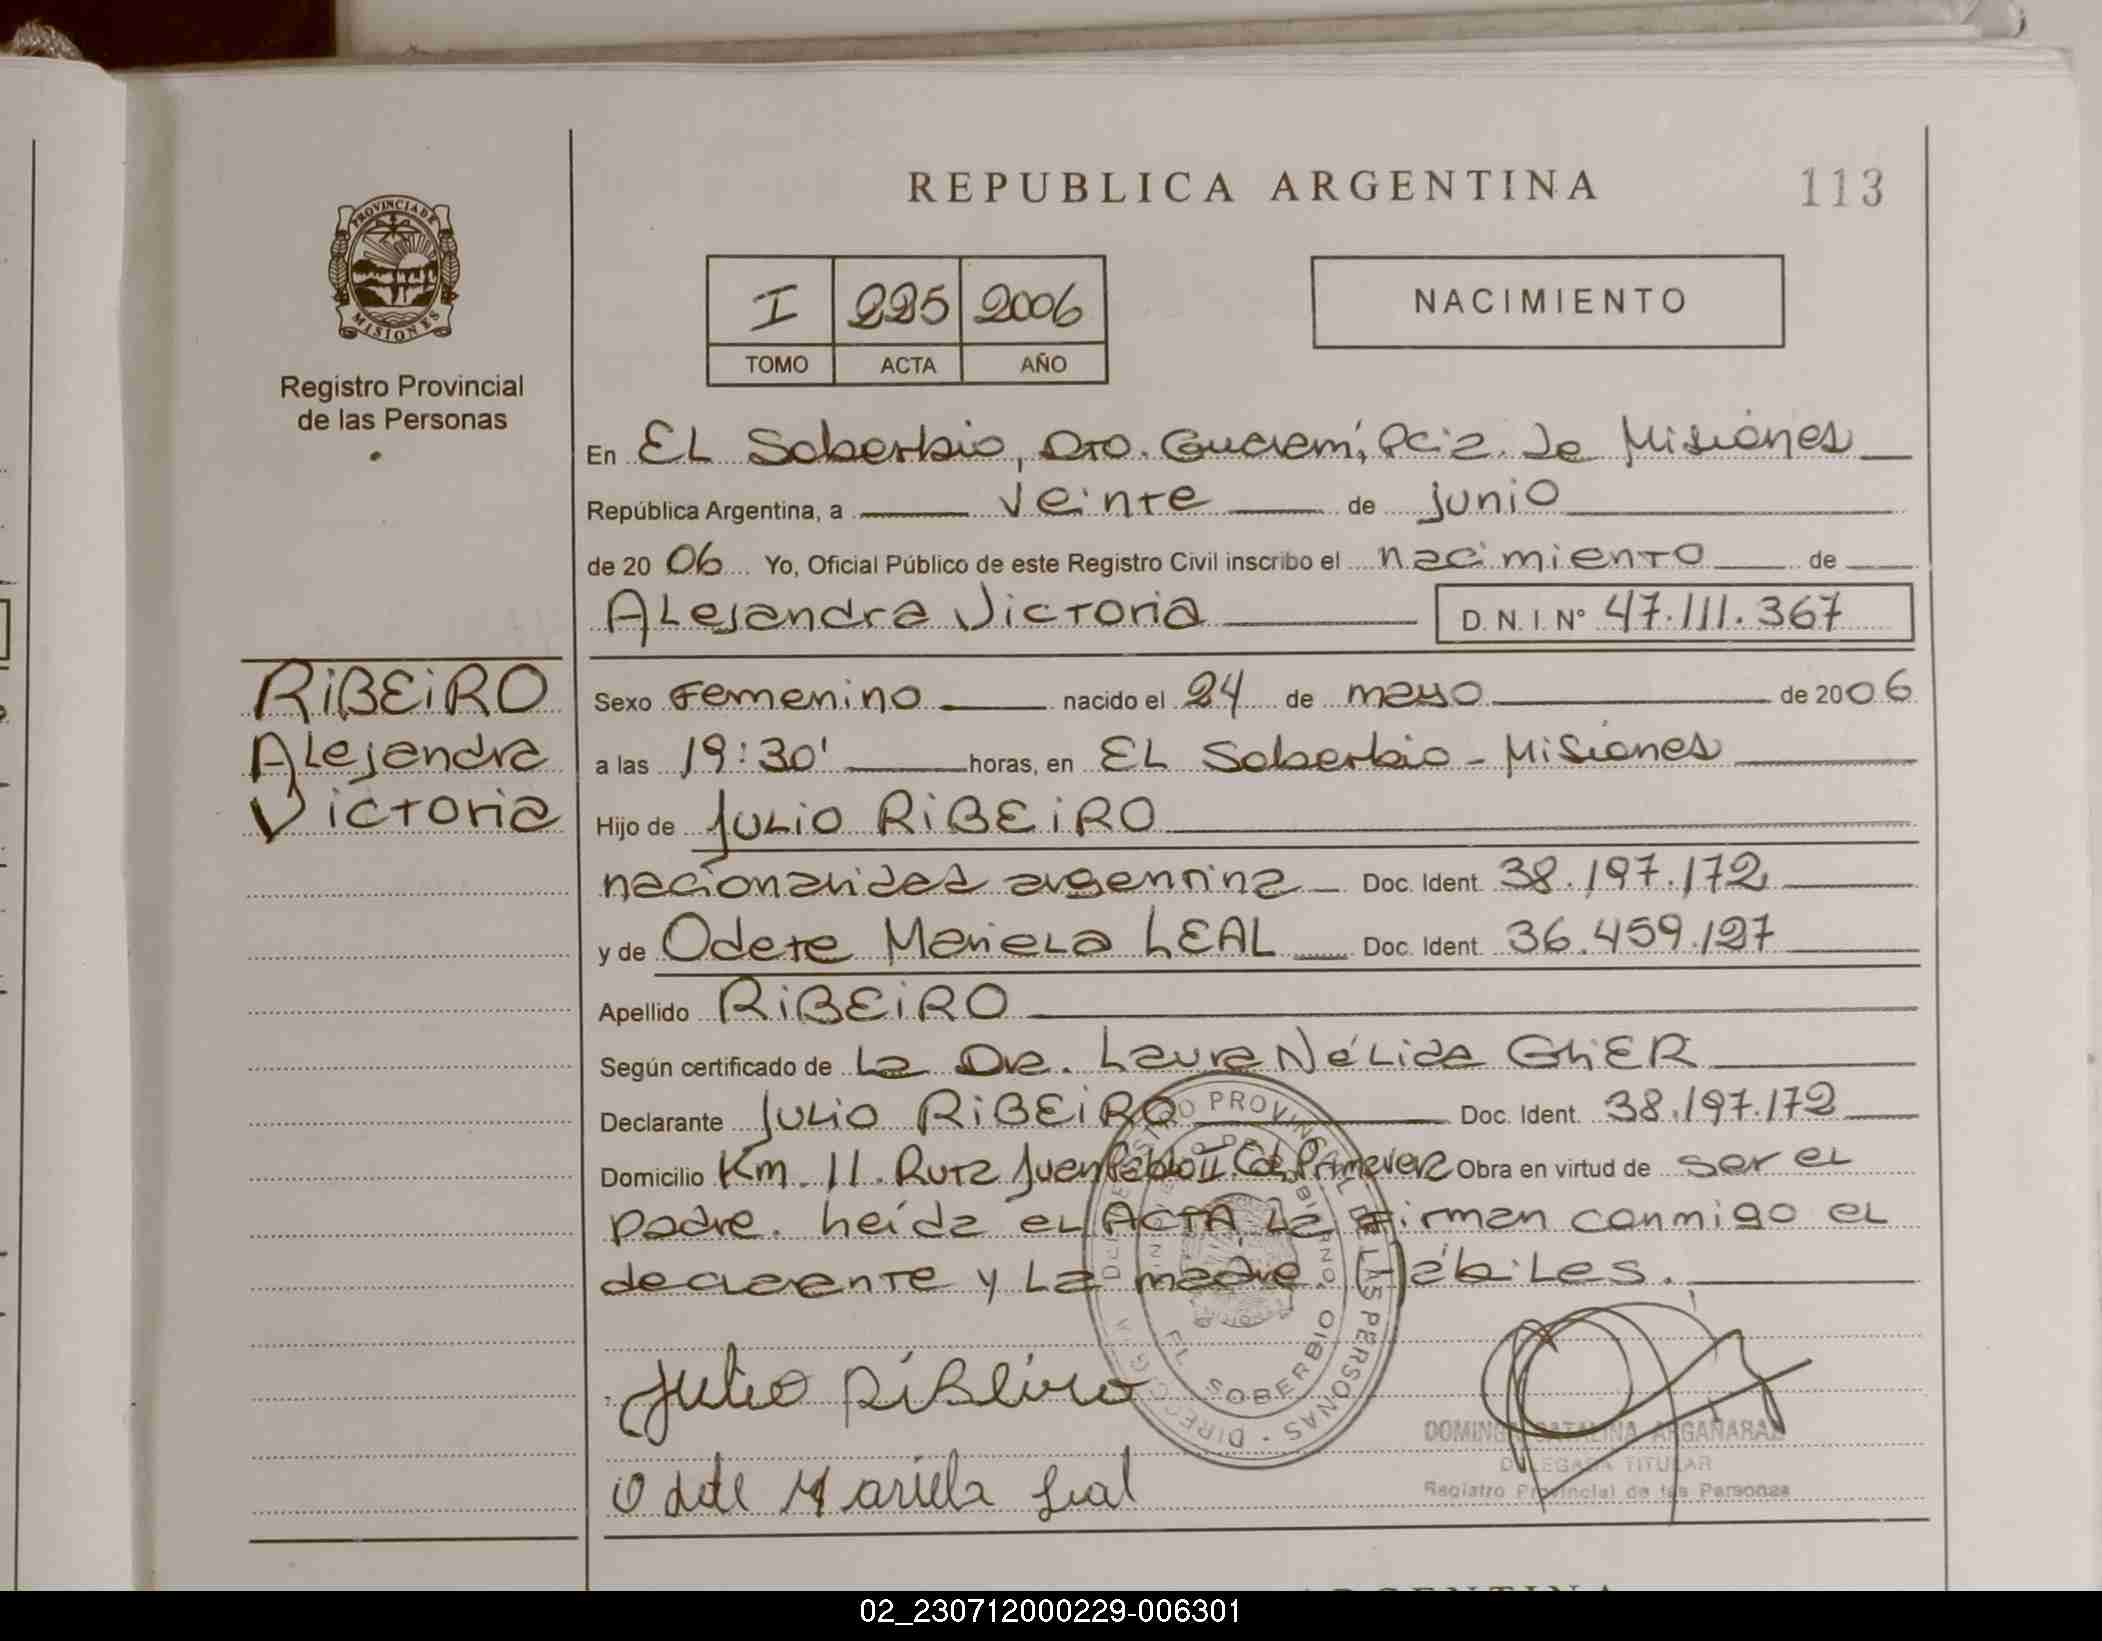 REPUBLICA ARGENTINA
113
PROVINCIA DE MISIONES
Registro Provincial
de las Personas
I 225 2006
TOMO ACTA AÑO
NACIMIENTO
En EL Soberbio, Dto. Guaraní, Pcia. de Misiones
República Argentina, a veinte de junio
de 2006 Yo, Oficial Público de este Registro Civil inscribo el nacimiento de
Alejandra Victoria D.N.I. Nº 47.111.367
RIBEIRO
Alejandra
Victoria
Sexo Femenino nacido el 24 de mayo de 2006
a las 19:30' horas, en EL Soberbio - Misiones
Hijo de Julio RIBEIRO
nacionalidad argentina Doc. Ident. 38.197.172
y de Odete Mariela LEAL Doc. Ident. 36.459.127
Apellido RIBEIRO
Según certificado de La Dra. Laura Nélida GHER
Declarante Julio RIBEIRO Doc. Ident. 38.197.172
Domicilio Km. 11. Ruta Juan Pablo II. Col. Primavera Obra en virtud de ser el
padre. Leída el ACTA la firman conmigo el
declarante y la madre. Hábiles.
Julio Ribeiro
Odete Mariela Leal
REGISTRO PROVINCIAL DE LAS PERSONAS
EL SOBERBIO
CATALINA ARGAÑARAZ
DELEGADA TITULAR
Registro Provincial de las Personas
ARGENTINA
02_230712000229-006301